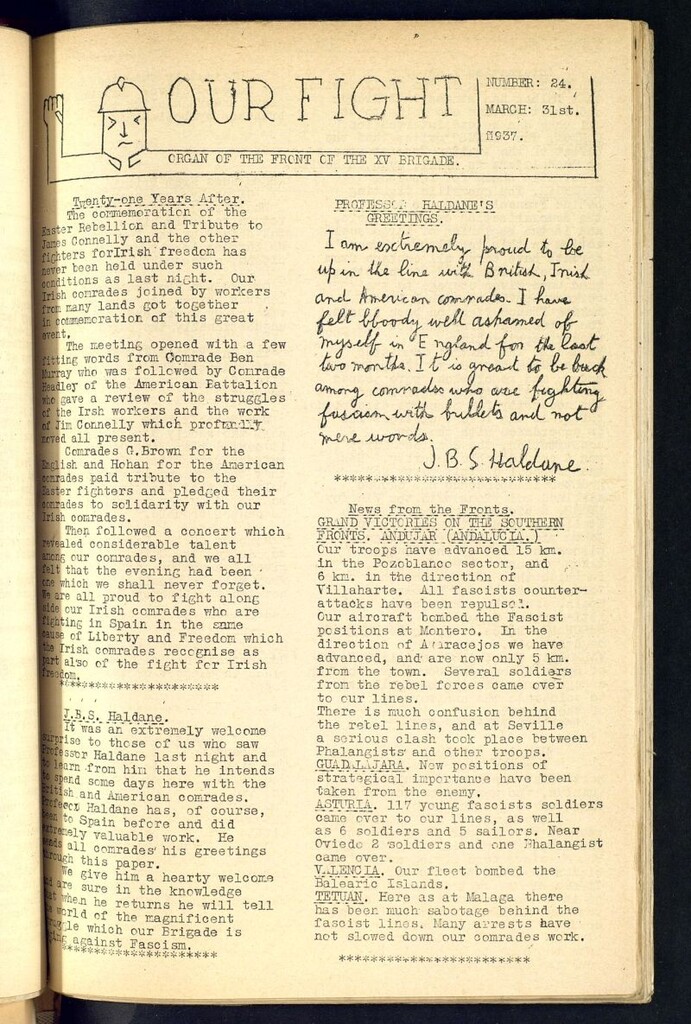 OUR FIGHT
NUMBER: 24.
MARCH: 31st.
1937.
ORGAN OF THE FRONT OF THE XV BRIGADE.
Twenty-one Years After.
The commemoration of the
Easter Rebellion and Tribute to
James Connelly and the other
fighters forIrish freedom has
never been held under such
conditions as last night. Our
Irish comrades joined by workers
from many lands got together
in commemoration of this great
event.
The meeting opened with a few
fitting words from Comrade Ben
Murray who was followed by Comrade
Headley of the American Battalion
who gave a review of the struggles
of the Irsh workers and the work
of Jim Connelly which
moved all present.
Comrades G.Brown for the
English and Hohan for the American
comrades paid tribute to the
Easter fighters and pledged their
comrades to solidarity with our
Irish comrades.
Then followed a concert which
revealed considerable talent
among our comrades, and we all
felt that the evening had been
one which we shall never forget.
We are all proud to fight along
side our Irish comrades who are
fighting in Spain in the same
cause of Liberty and Freedom which
the Irish comrades recognise as
part also of the fight for Irish
freedom.
*********************
J.B.S. Haldane.
It was an extremely welcome
surprise to those of us who saw
Professor Haldane last night and
to learn from him that he intends
to spend some days here with the
British and American comrades.
Professor Haldane has, of course,
been to Spain before and did
extremely valuable work. He
sends all comrades his greetings
through this paper.
We give him a hearty welcome
and are sure in the knowledge
that when he returns he will tell
the world of the magnificent
struggle which our Brigade is
against Fascism.
*********************
PROFESSOR HALDANE'S
GREETINGS.
I am extremely proud to be
up in the line with British, Irish
and American comrades. I have
felt bloody well ashamed of
myself in England for the last
two months. It is great to be back
among comrades who are fighting
fascism with bullets and not
mere words.
J.B.S. Haldane.
*****************************
News from the Fronts.
GRAND VICTORIES ON THE SOUTHERN
FRONTS. ANDUJAR (ANDALUCIA.)
Our troops have advanced 15 km.
in the Pozoblanco sector, and
6 km. in the direction of
Villaharte. All fascists counter-
attacks have been repulsed.
Our aircraft bombed the Fascist
positions at Montero. In the
direction of we have
advanced, and are now only 5 km.
from the town. Several soldiers
from the rebel forces came over
to our lines.
There is much confusion behind
the rebel lines, and at Seville
a serious clash took place between
Phalangists and other troops.
GUADALAJARA. New positions of
strategical importance have been
taken from the enemy.
ASTURIA. 117 young fascists soldiers
came over to our lines, as well
as 6 soldiers and 5 sailors. Near
Oviedo 2 soldiers and one Phalangist
came over.
VALENCIA. Our fleet bombed the
Balearic Islands.
TETUAN. Here as at Malaga there
has been much sabotage behind the
fascist lines. Many arrests have
not slowed down our comrades work.
*************************